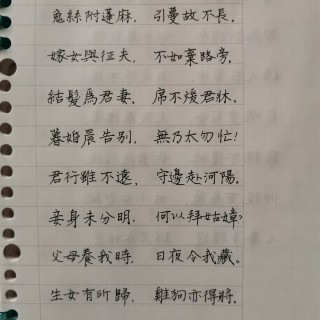 兔絲附蓬麻，引蔓故不長。
嫁女與征夫，不如棄路旁。
結髮為君妻，席不煖君牀。
暮婚晨告別，無乃太匆忙！
君行雖不遠，守邊赴河陽。
妾身未分明，何以拜姑嫜？
父母養我時，日夜令我藏。
生女有所歸，雞狗亦得將。